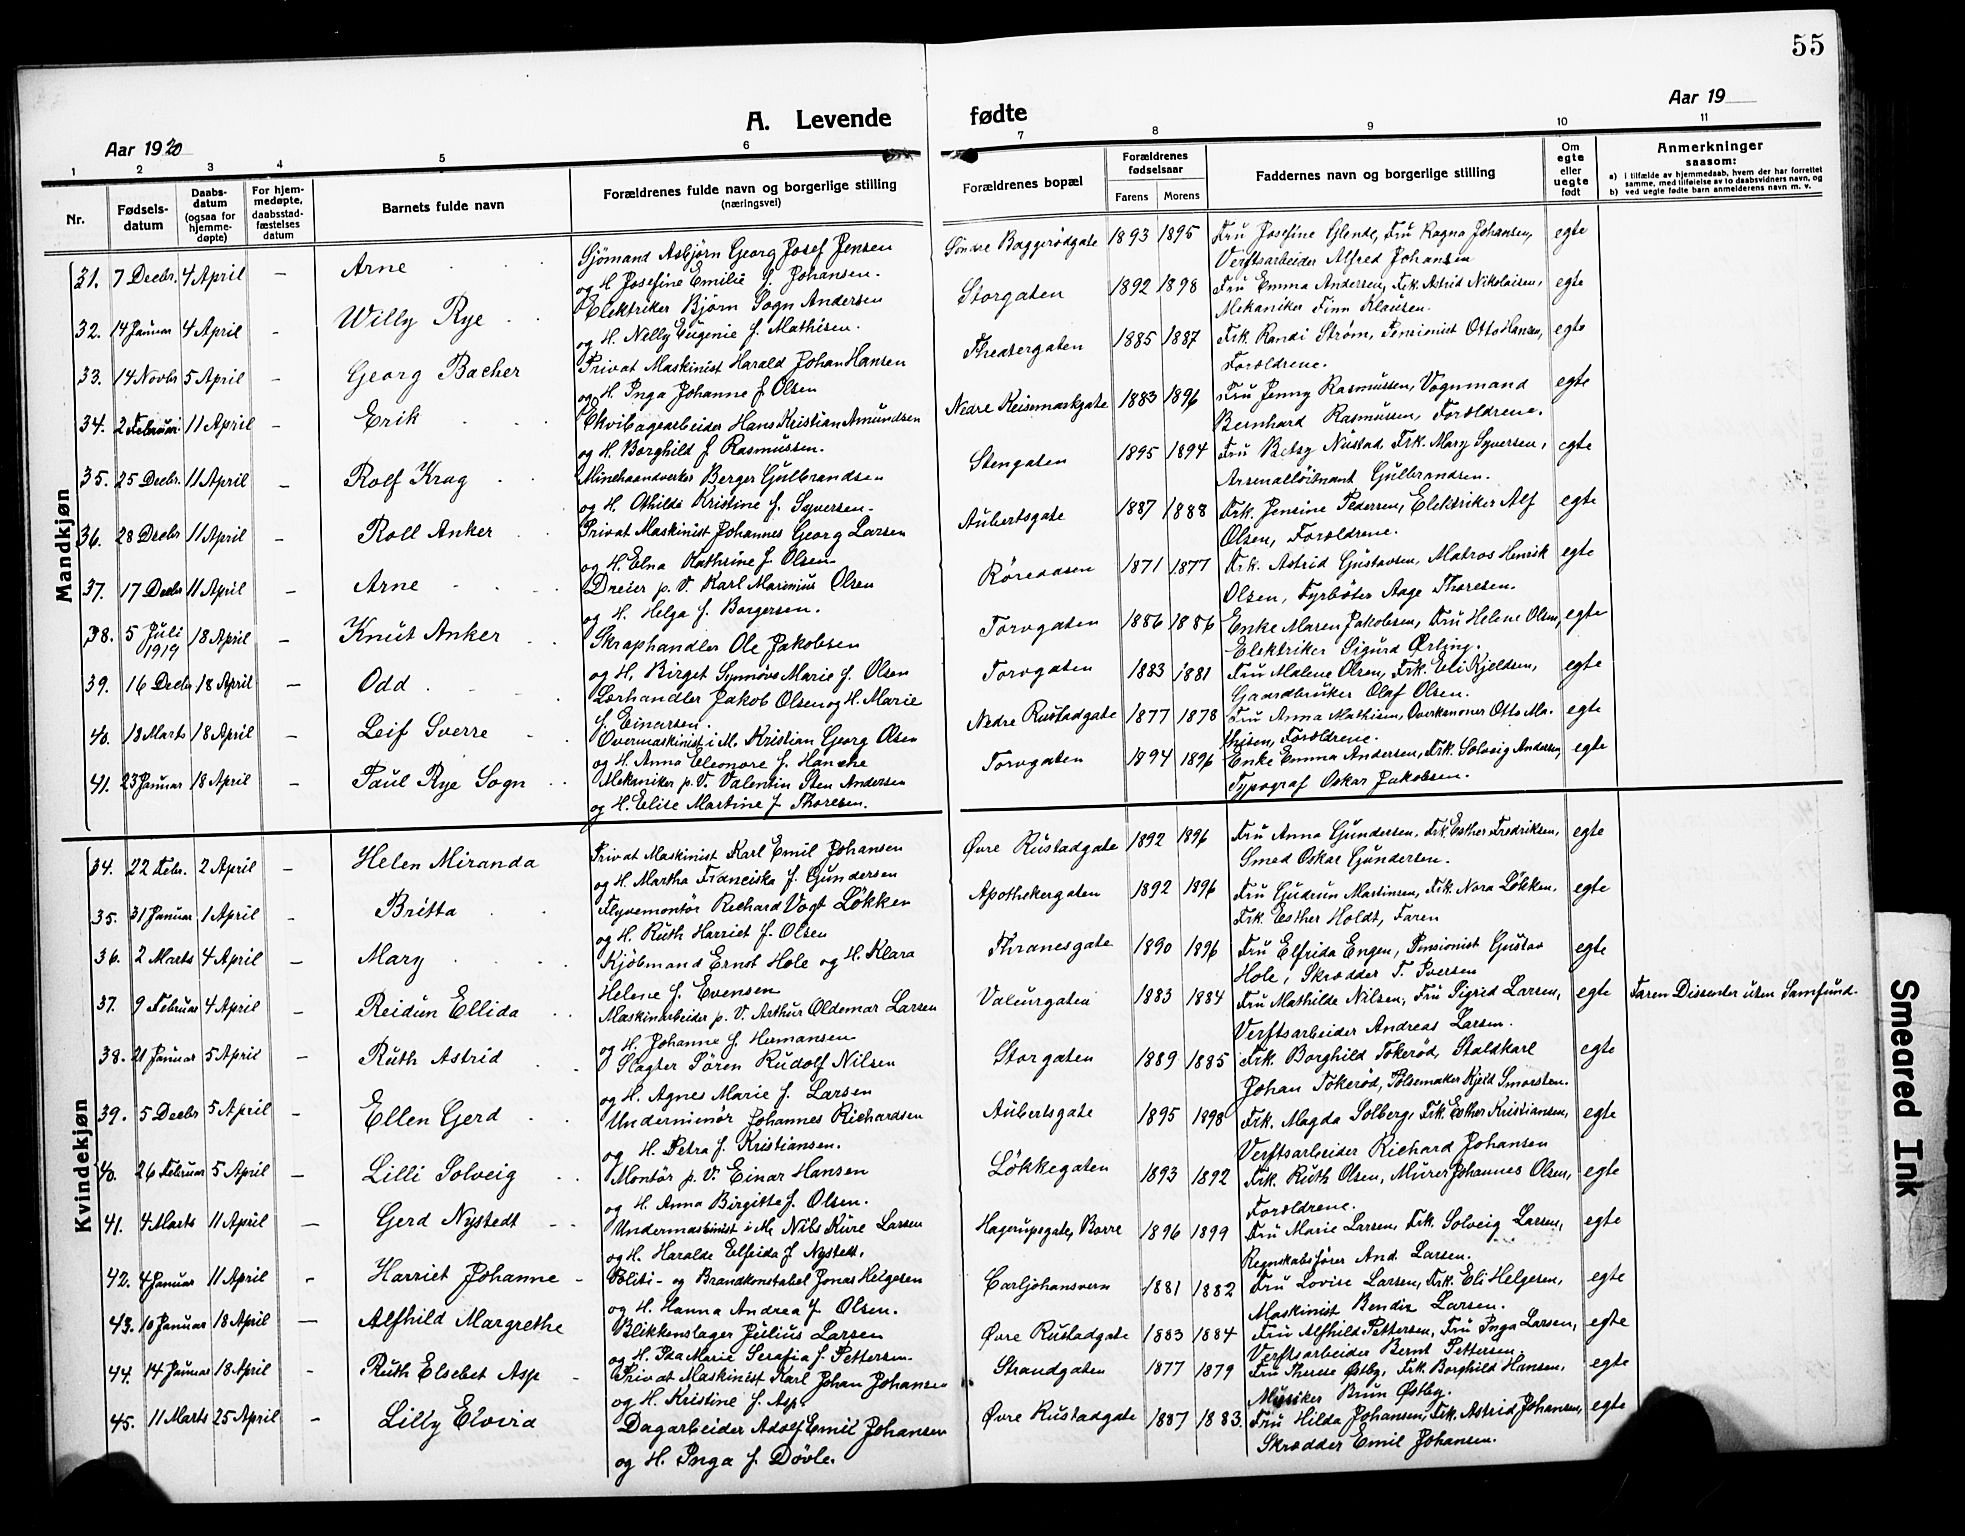 55
A. Levende fødte
Aar 1920
Aar 19
1 2 3 4 5 6 7 8 9 10 11
Nr.
Fødsels-
datum
Daabs-
datum
(ogsaa for
hjemme-
døpte)
For hjem-
medøpte,
daabsstad-
fæstelses
datum
Barnets fulde navn
Forældrenes fulde navn og borgerlige stilling
(næringsvei)
Forældrenes bopæl
Forældrenes
fødselsaar
Farens Morens
Faddernes navn og borgerlige stilling
Om
egte
eller
uegte
født
Anmerkninger
saasom:
a) i tilfælde av hjemmedaab, hvem der har forrettet
samme, med tilføielse av to daabsvidners navn, og
b) ved uegte fødte barn anmelderens navn m. v.
Mandkjøn
31. 7 Decbr. 4 April – Arne Sjömand Asbjörn Georg Josef Jensen Søndre Baggerödgate 1893 1895 Fru Josefine Glende, Fru Ragna Johansen, egte
og H. Josefine Emilie f. Johansen. Verftsarbeider Alfred Johansen
32. 14 Januar 4 April – Willy Rye Elektriker Bjørn Sogn Andersen Storgaten 1892 1898 Fru Emma Andersen, Frk. Astrid Nikolaisen, egte
og H. Nelly Eugenie f. Mathisen. Mekaniker Finn Klausen.
33. 14 Novbr 5 April – Georg Bacher Privat Maskinist Harald Johan Hansen Theatergaten 1885 1887 Frk. Randi Strøm, Pensionist Otto Hansen, egte
og H. Inga Johanne f. Olsen Forældrene.
34. 2 Februar 11 April – Erik Ekvipagearbeider Hans Kristian Amundsen Nedre Keisemarkgate 1883 1896 Fru Jenny Rasmussen, Vognmand egte
og H. Borghild f Rasmussen. Bernhard Rasmussen, Forældrene.
35. 25 Decbr. 11 April – Rolf Krag Minehaandverker Berger Gulbrandsen Stengaten 1895 1894 Fru Betsy Nustad, Frk. Mary Syversen, egte
og H. Othilde Kristine f. Syversen. Arsenalløitnant Gulbrandsen.
36. 28 Decbr 11 April – Roll Anker Privat Maskinist Johannes Georg Larsen Aubertsgate 1887 1888 Frk. Jensine Pedersen, Elektriker Alf egte
og H. Elna Kathrine f. Olsen Olsen, Forældrene.
37. 17 Decbr 11 April – Arne Dreier p. V. Karl Marinius Olsen Røredasen 1871 1877 Frk. Astrid Gustavsen, Matros Henrik egte
og H. Helga f. Borgersen. Olsen, Fyrbøter Aage Thoresen.
38. 5 Juli 1919 18 April – Knut Anker Skraphandler Ole Jakobsen Torvgaten 1886 1886 Enke Maren Jakobsen, Fru Helene Olsen, egte
og H. Birget Synnøve Marie f. Olsen Elektriker Sigurd Ørling.
39. 16 Decbr 18 April – Odd Lærhandler Jakob Olsen og H. Marie Torvgaten 1883 1881 Fru Malene Olsen, Frk. Eli Kjeldsen, egte
f. Einarsen. Gaardbruker Olaf Olsen.
40. 18 Marts 18 April – Leif Sverre Overmaskinist i M. Kristian Georg Olsen Nedre Rustadgate 1877 1878 Fru Anna Mathisen, Overkanoner Otto Ma- egte
og H. Anna Eleonore f. Hanche thisen, Forældrene.
41. 23 Januar 18 April – Paul Rye Sogn Mekaniker p. V. Valentin Sten Andersen Torvgaten 1894 1896 Enke Emma Andersen, Frk. Solveig Andersen, egte
og H. Elise Martine f Thoresen. Typograf Oskar Jakobsen.
Kvindekjøn
34. 22 Febr. 2 April – Helen Miranda Privat Maskinist Karl Emil Johansen Øvre Rustadgate 1892 1896 Fru Anna Gundersen, Frk. Esther Fredriksen, egte
og H. Martha Franciska f. Gundersen Smed Oskar Gundersen.
35. 31 Januar 1 April – Britta Flyvemontör Richard Vogt Løkken Apothekergaten 1892 1896 Fru Gudrun Martinsen, Frk. Nora Løkken, egte
og H. Ruth Harriet f. Olsen Frk. Esther Holdt, Faren
36. 2 Marts 4 April – Mary Kjøbmand Ernst Hole og H. Klara Thranesgate 1890 1896 Fru Elfrida Engen, Pensionist Gustav egte
Helene f. Evensen Hole, Skrædder T. Iversen
37. 9 Februar 4 April – Reidun Ellida Maskinarbeider p. V. Arthur Oldemar Larsen Valeurgaten 1883 1884 Fru Mathilde Nilsen, Fru Sigrid Larsen, egte Faren Dissenter uten Samfund.
og H. Johanne f. Hermansen Verftsarbeider Andreas Larsen.
38. 21 Januar 5 April – Ruth Astrid Slagter Sören Rudolf Nilsen Storgaten 1889 1885 Frk. Borghild Tokerød, Staldkarl egte
og H. Agnes Marie f. Larsen Johan Tokerød, Pølsemaker Kjeld Smørsten.
39. 5 Decbr 5 April – Ellen Gerd Underminör Johannes Richardsen Aubertsgate 1895 1898 Frk. Magda Solberg, Frk. Esther Kristiansen, egte
og H. Petra f. Kristiansen. Verftsarbeider Richard Johansen
40. 26 Februar 5 April – Lilli Solveig Montör p. V. Einar Hansen Løkkegaten 1893 1892 Frk. Ruth Olsen, Murer Johannes Olsen, egte
og H. Anna Birgitte f. Olsen. Forældrene.
41. 4 Marts 11 April – Gerd Nystedt Undermaskinist i M. Nils Kure Larsen Hagerupsgate, Borre 1896 1899 Fru Marie Larsen, Frk. Solveig Larsen, egte
og H. Haralde Elfrida f Nystedt. Regnskabsfører And. Larsen.
42. 4 Januar 11 April – Harriet Johanne Politi- og Brandkonstabel Jonas Helgesen Carljohansvern 1881 1882 Fru Lovise Larsen, Frk. Eli Helgesen, egte
og H. Hanna Andrea f. Olsen. Maskinist Bendix Larsen.
43. 10 Januar 18 April – Alfhild Margrethe Blikkenslager Julius Larsen Øvre Rustadgate 1883 1884 Fru Alfhild Pettersen, Fru Inga Larsen, egte
og H. Ida Marie Serafia f. Pettersen. Verftsarbeider Bernt Pettersen.
44. 14 Januar 18 April – Ruth Elsebet Asp Privat Maskinist Karl Johan Johansen Strandgaten 1877 1879 Fru Therese Østby, Frk. Borghild Hansen, egte
og H. Kristine f. Asp. Musiker Brun Østby.
45. 11 Marts 25 April – Lilly Elvira Dagarbeider Adolf Emil Johansen Øvre Rustadgate 1887 1883. Fru Hilda Johansen, Frk. Astrid Johansen, egte
og H. Inga f. Døvle. Skrædder Emil Johansen.
Smeared Ink